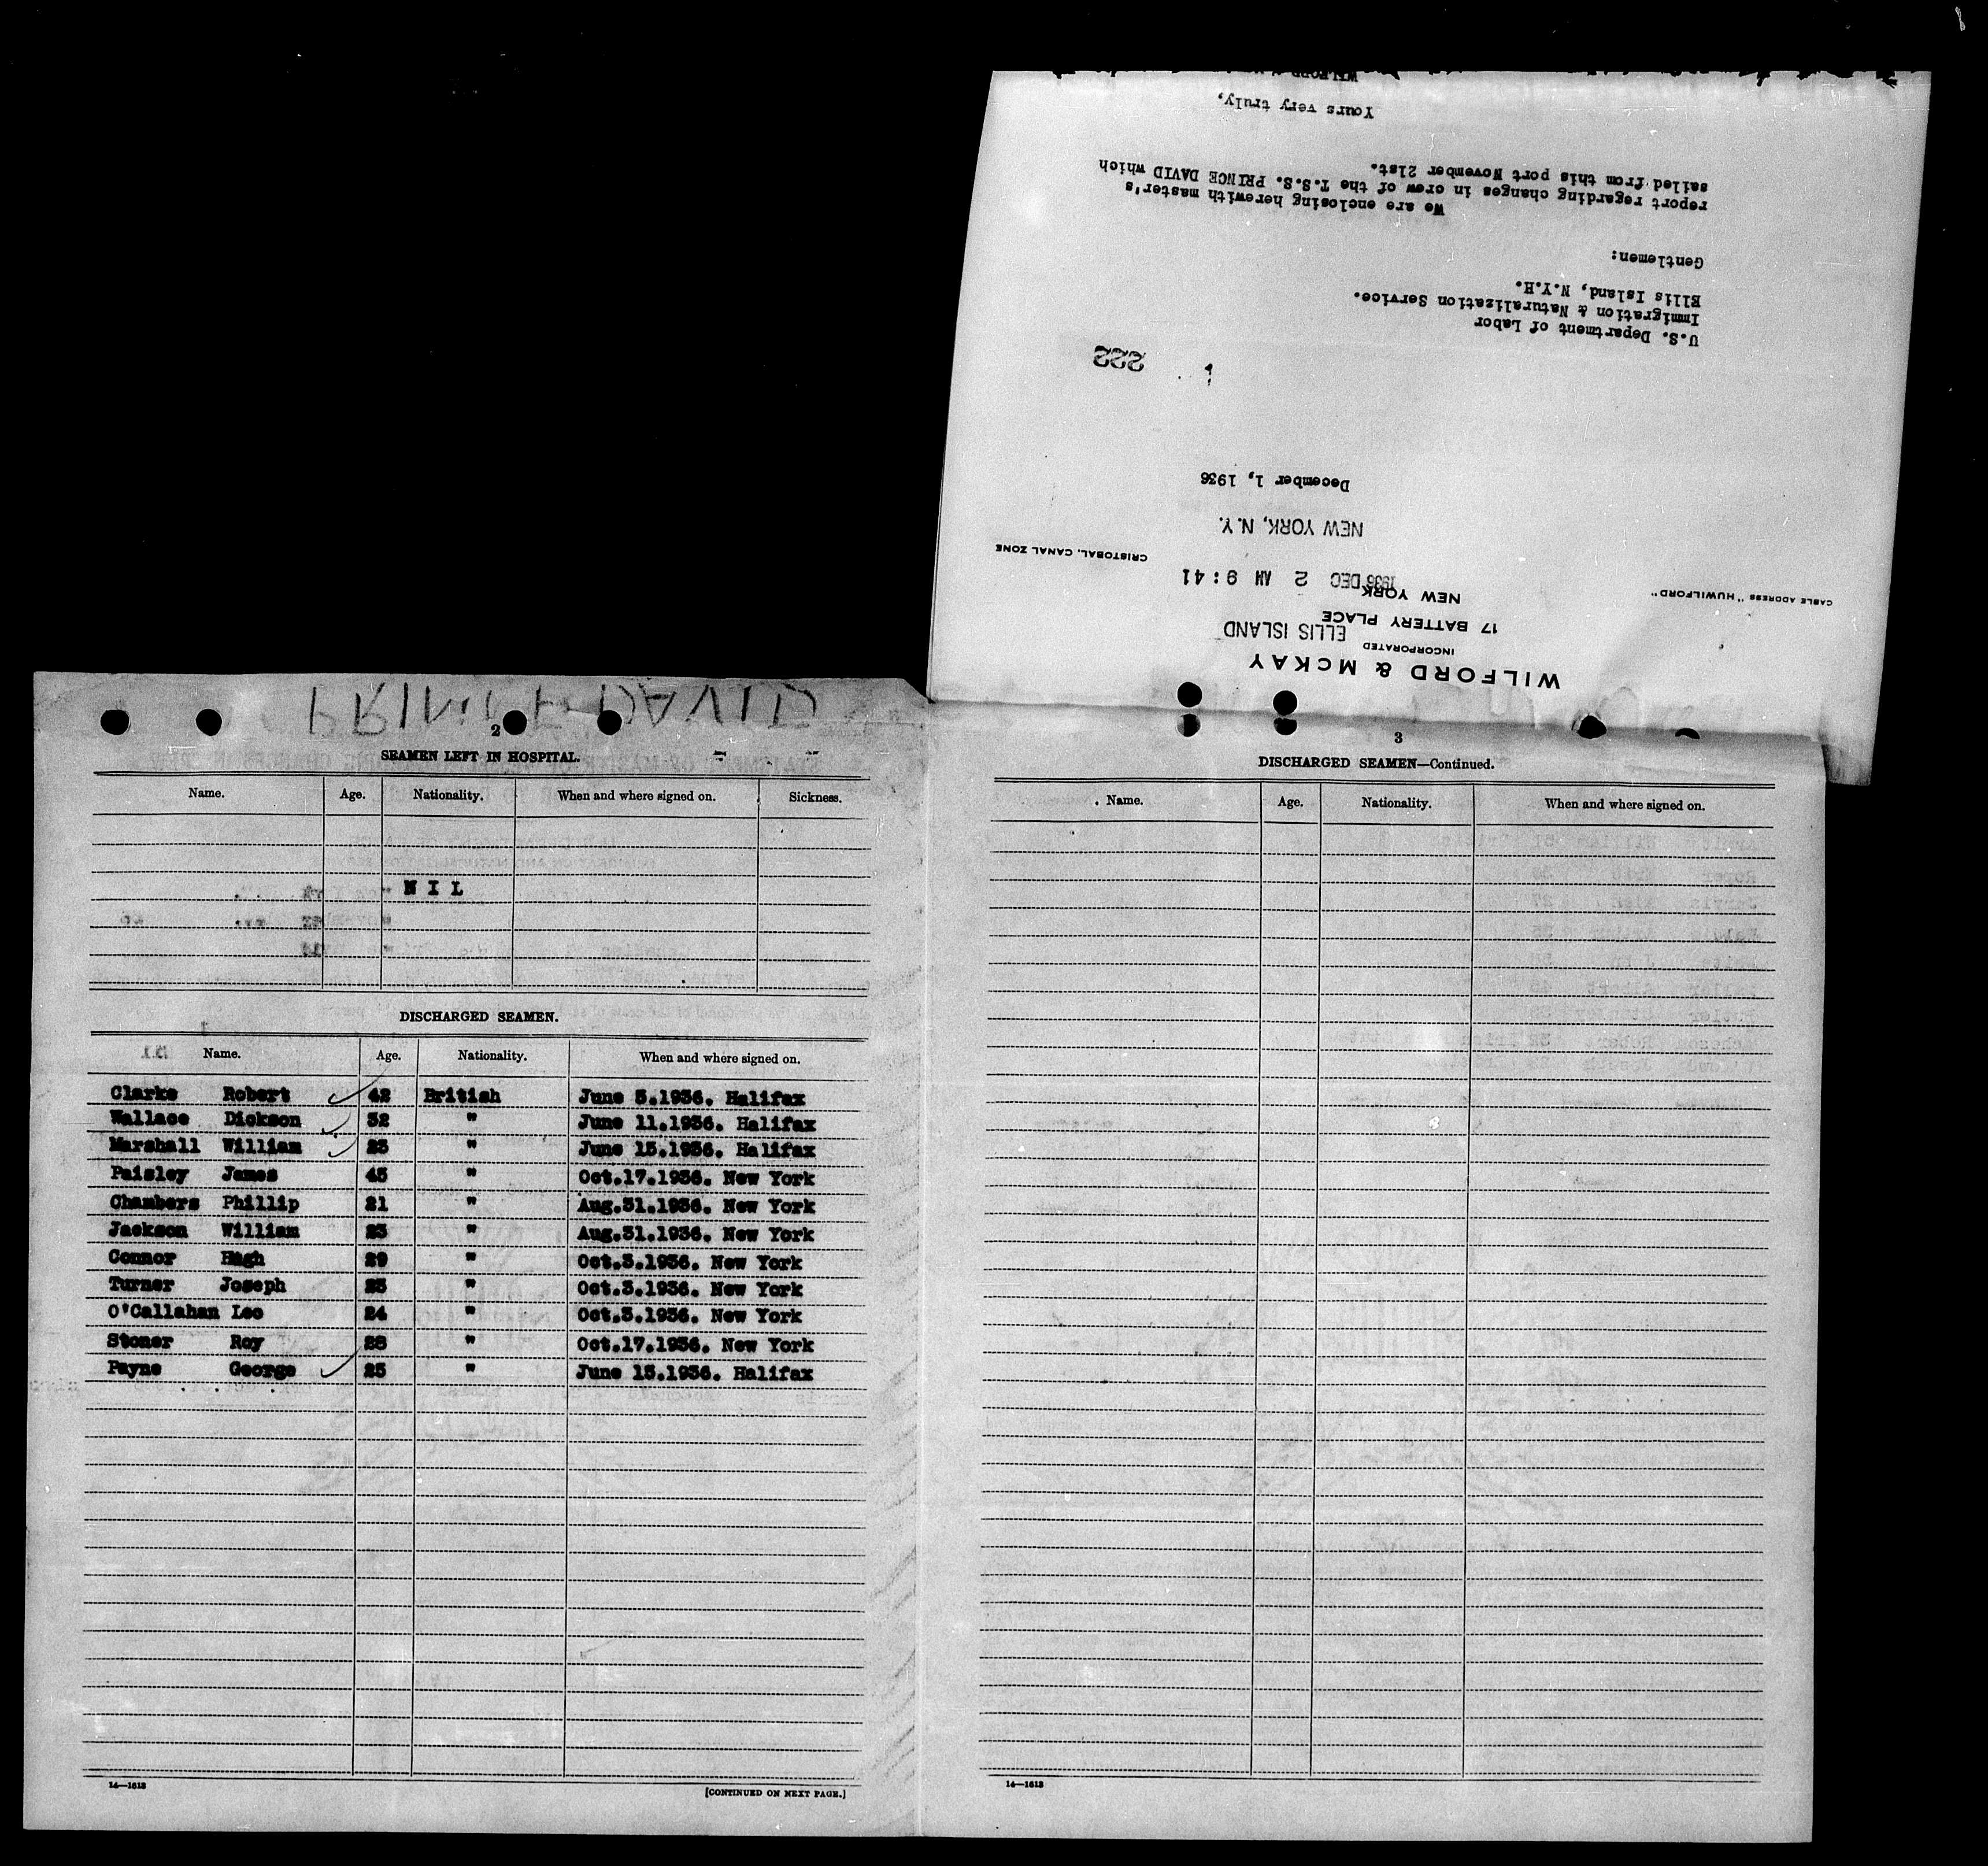 WILFORD & MCKAY
INCORPORATED
ELLIS ISLAND
17 BATTERY PLACE
NEW YORK
1936 DEC 2 AM 9:41
CABLE ADDRESS "HUWILFORD"
CRISTOBAL, CANAL ZONE
NEW YORK, N.Y.
December 1, 1936
222
U.S. Department of Labor
Immigration & Naturalization Service.
Ellis Island, N.Y.H.
Gentlemen:
We are enclosing herewith master's
report regarding changes in crew of the T.S.S. PRINCE DAVID which
sailed from this port November 21st.
Yours very truly,
WILFORD &
PRINCE DAVID
2
SEAMEN LEFT IN HOSPITAL.
Name. Age. Nationality. When and where signed on. Sickness.
N I L
DISCHARGED SEAMEN.
Name. Age. Nationality. When and where signed on.
Clarke Robert 42 British June 5.1936. Halifax
Wallace Dickson 32 " June 11.1936. Halifax
Marshall William 23 " June 15.1936. Halifax
Paisley James 45 " Oct.17.1936. New York
Chambers Phillip 21 " Aug.31.1936. New York
Jackson William 23 " Aug.31.1936. New York
Connor Hugh 29 " Oct.3.1936. New York
Turner Joseph 23 " Oct.3.1936. New York
O'Callahan Leo 24 " Oct.3.1936. New York
Stoner Roy 28 " Oct.17.1936. New York
Payne George 25 " June 15.1936. Halifax
14—1613
[CONTINUED ON NEXT PAGE.]
3
DISCHARGED SEAMEN—Continued.
Name. Age. Nationality. When and where signed on.
14—1613